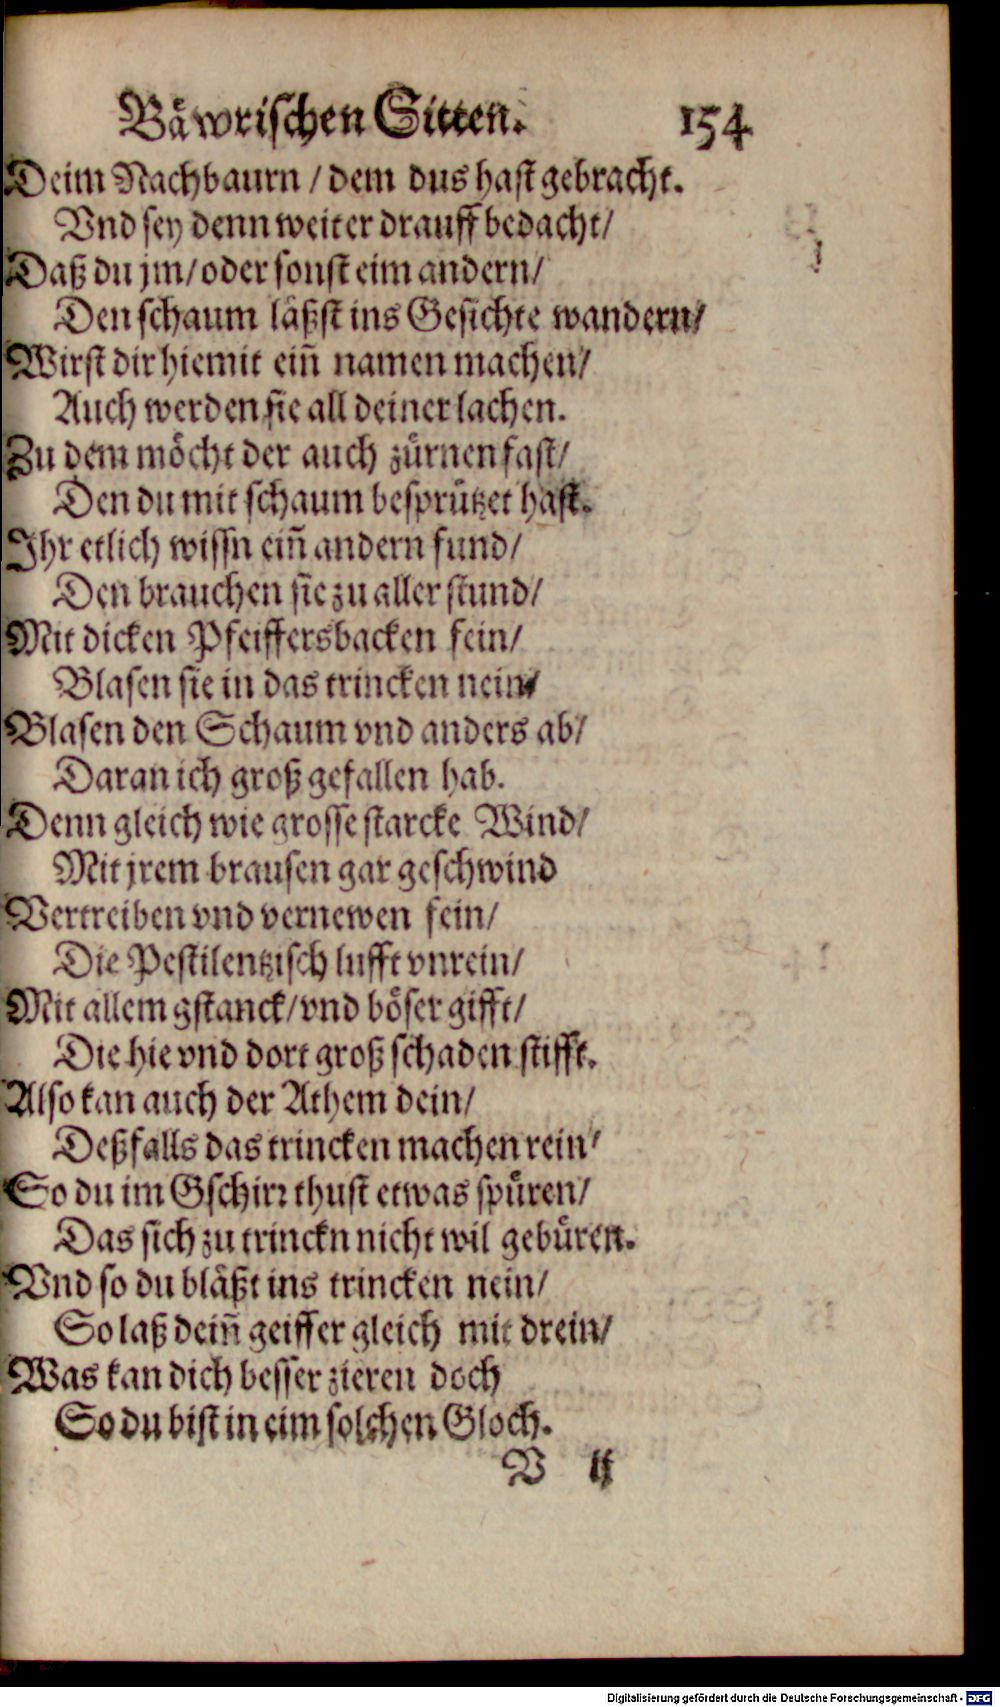 Bäwrischen Sitten. 154
Deim Nachbaurn / dem dus hast gebracht.
Vnd sey denn weiter drauff bedacht/
Daß du jm/ oder sonst eim andern/
Den schaum läßst ins Gesichte wandern/
Wirst dir hiemit ein̄ namen machen/
Auch werden sie all deiner lachen.
Zu dem möcht der auch zürnen fast/
Den du mit schaum besprützet hast.
Ihr etlich wissn ein̄ andern fund/
Den brauchen sie zu aller stund/
Mit dicken Pfeiffersbacken fein/
Blasen sie in das trincken nein/
Blasen den Schaum vnd anders ab/
Daran ich groß gefallen hab.
Denn gleich wie grosse starcke Wind/
Mit jrem brausen gar geschwind
Vertreiben vnd vernewen fein/
Die Pestilentzisch lufft vnrein/
Mit allem gstanck/ vnd böser gifft/
Die hie vnd dort groß schaden stifft.
Also kan auch der Athem dein/
Deßfalls das trincken machen rein/
So du im Gschirr thust etwas spüren/
Das sich zu trinckn nicht wil gebüren.
Vnd so du bläßt ins trincken nein/
So laß dein̄ geiffer gleich mit drein/
Was kan dich besser zieren doch
So du bist in eim solchen Gloch.
V ij
Digitalisierung gefördert durch die Deutsche Forschungsgemeinschaft - DFG